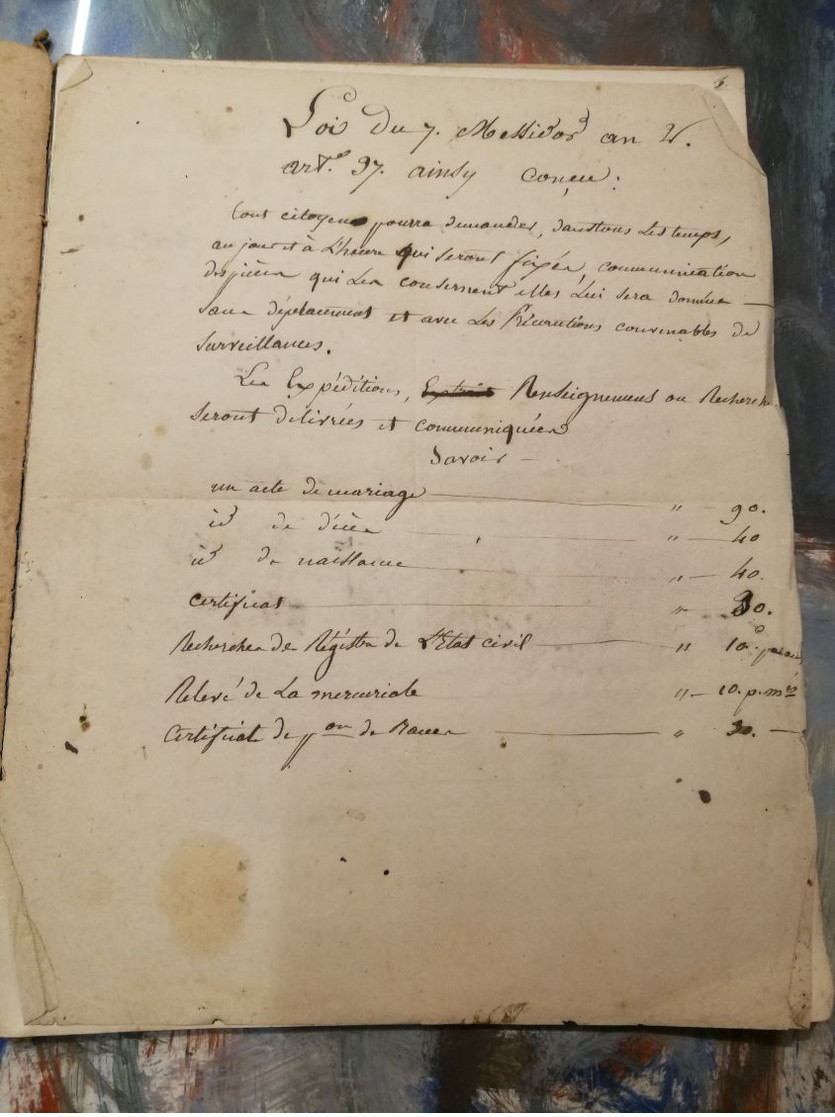 Loi du 7. Messidor an 2.
art. 37. ainsy conçu :
tout citoyen pourra demander, dans tous les temps,
au jour et à L'heure qui seront fixés, communication
des pièces qui les consernent elles Lui sera donnée —
sans déplacement et avec les Précautions convenables de
surveillances.
Les Expéditions, Extrait Renseignements ou Recherch
seront délivrées et communiquées
Savoir —
un acte de mariage — " 90.
id de décès — " — 40
id de naissance — " — 40.
Certificat — " 30.
Recherches des Régistres de L'Etat civil — " 10.
Relevé de La mercuriale " — 10. p. mes
Certificat de pon de Rouen — " 30. —